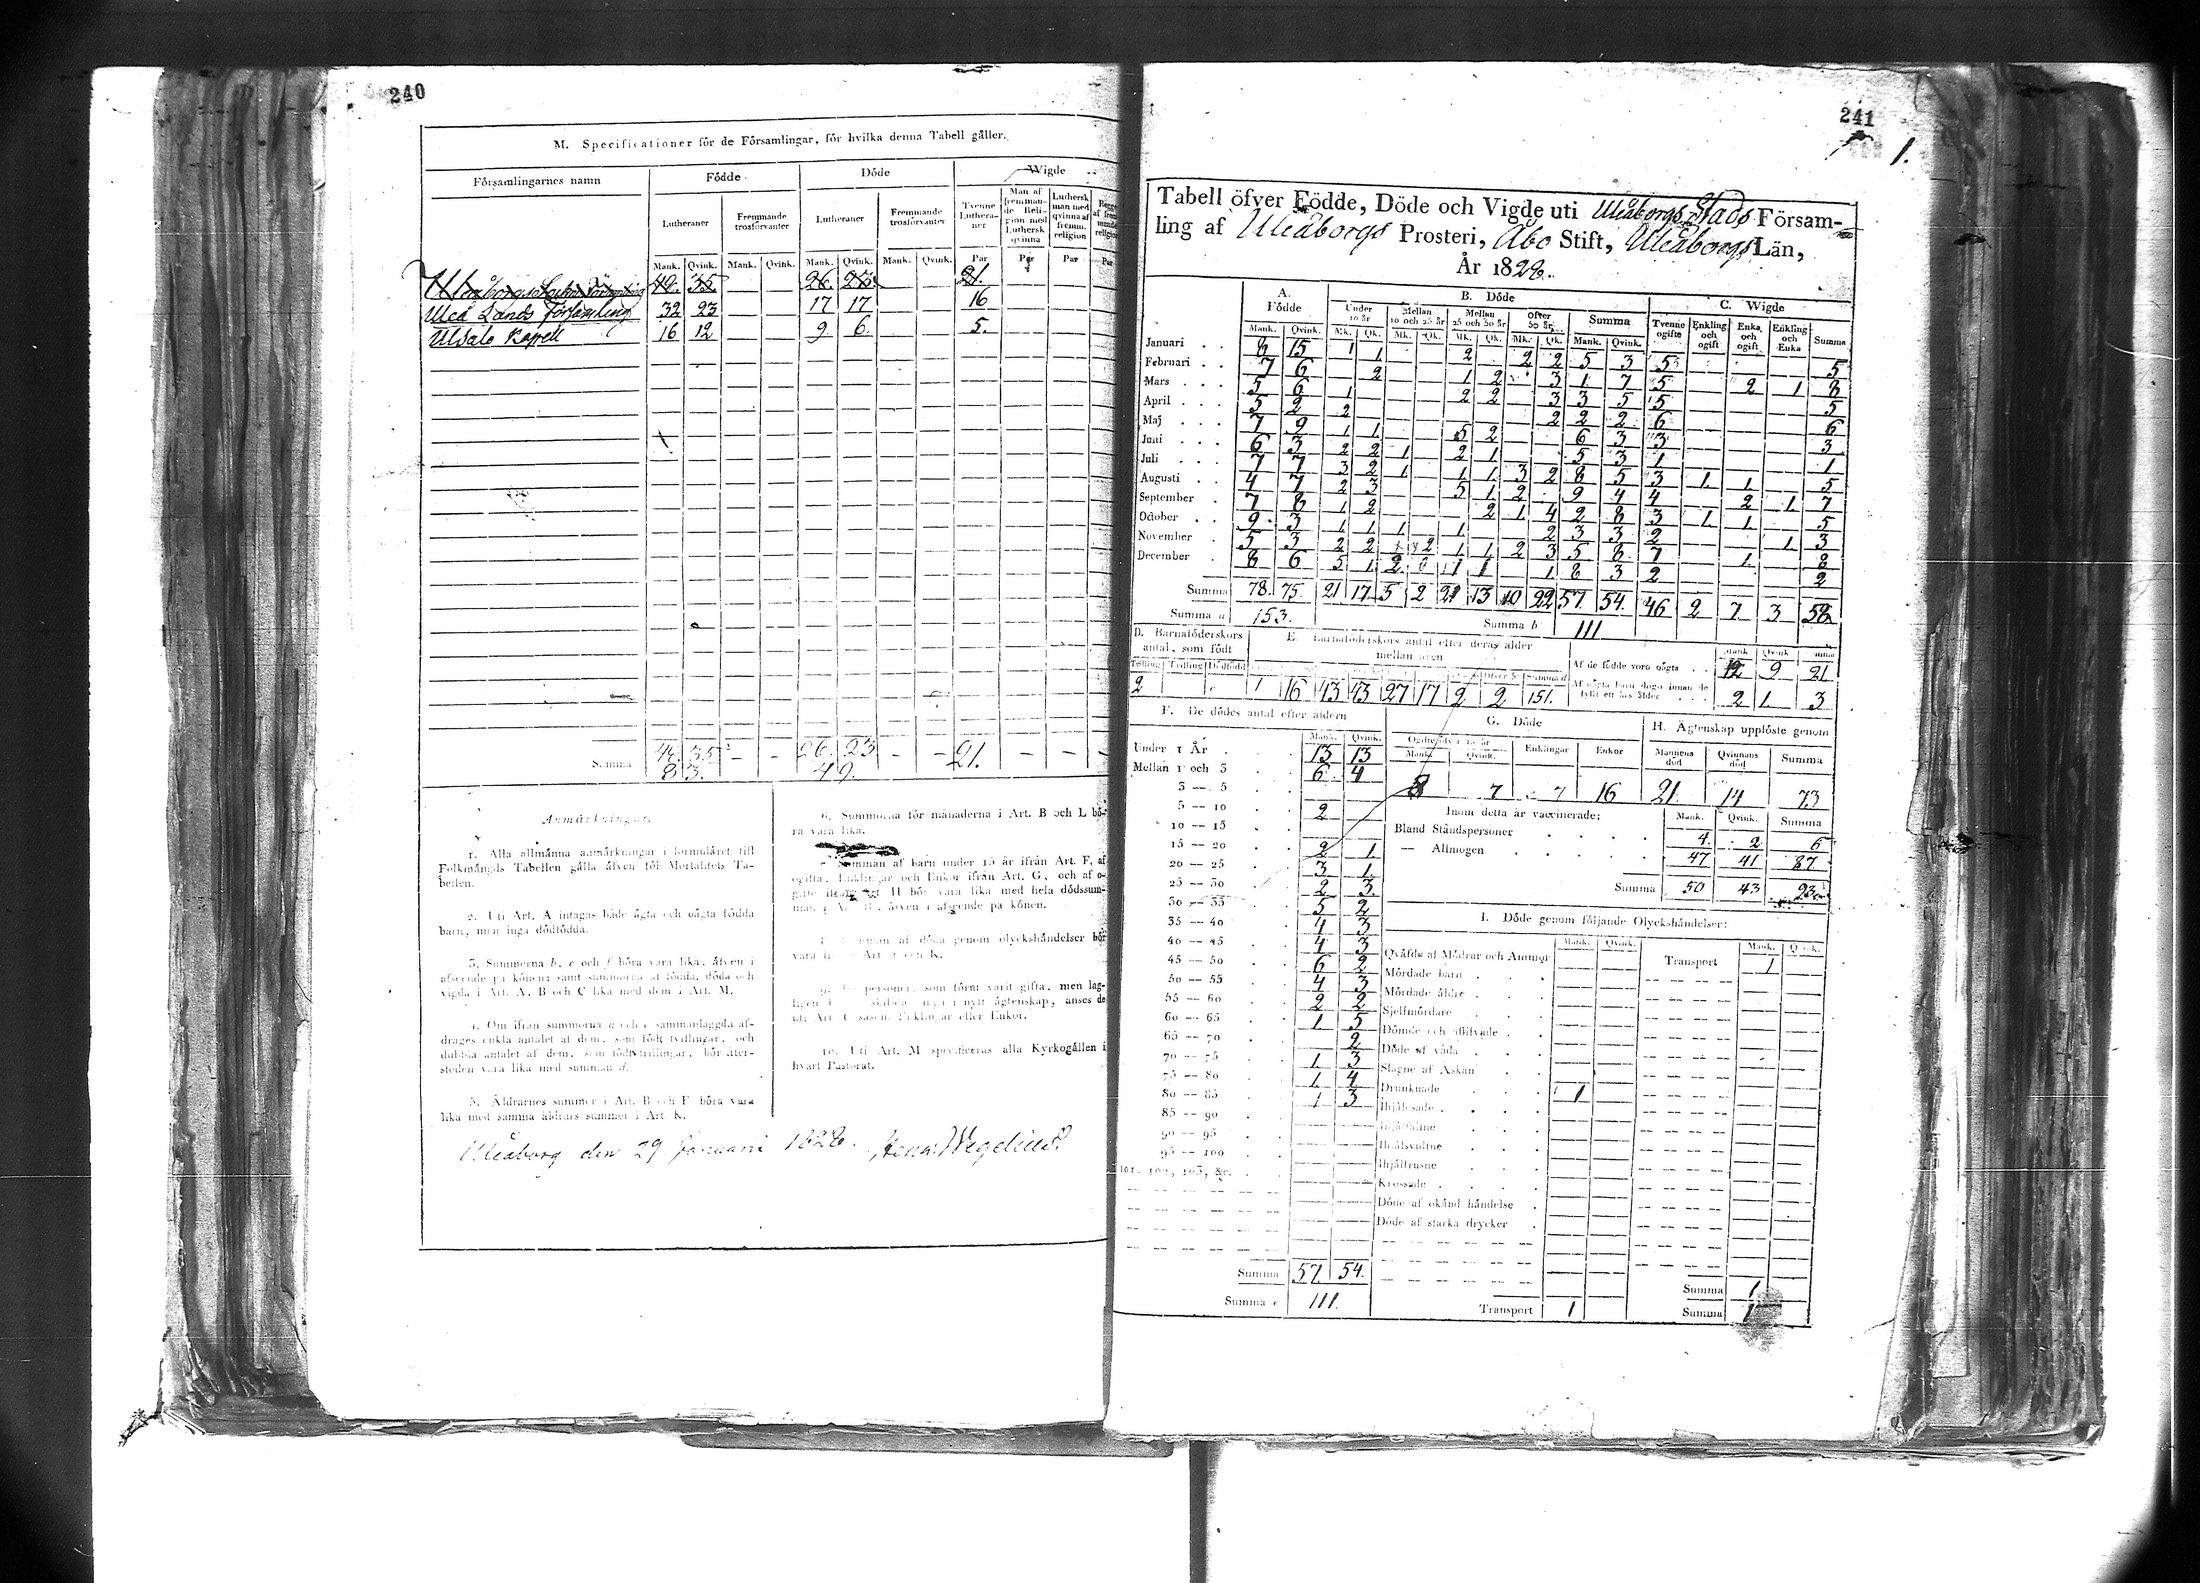 240
M. Specificationer för de Församlingar, för hvilka denna Tabell gäller.
Församlingarnes namn
Födde
Döde
Wigde
Lutheraner
Fremmande trosförvanter
Lutheraner
Fremmande trosförvanter
Tvenne Lutheraner
Man af fremmande Religion med Luthersk qvinna
Luthersk man med qvinna af fremm. religion
Mank. Qvink. Mank. Qvink. Mank. Qvink. Mank. Qvink. Par Par Par Par
48. 35 26. 23 21.
Uleå Lands Församling 32 23 17 17 16
Kapell 16 12 9 6 5.
Summa 48 35 — — 26. 23 — — 21. — — —
83. 49.
Anmärkningar.
1. Alla allmänna anmärkningar i formuläret till
Folkmängds Tabellen gälla äfven för Mortalitets Ta-
bellen.
2. Uti Art. A intagas både ägta och oägta födda
barn, men inga dödfödda.
3. Summorna b, e och f böra vara lika, äfven i
afseende på könen; samt summorna af födda, döda och
vigda i Art. A, B och C lika med dem i Art. M.
4. Om ifrån summorna a och c sammanlaggda af-
drages enkla antalet af dem, som födt tvillingar, och
dubbla antalet af dem, som födt trillingar, bör åter-
stoden vara lika med summan d.
5. Äldrarnes summer i Art. B och F böra vara
lika med samma äldrars summer i Art. K.
6. Summorna för månaderna i Art. B och L bö-
ra vara lika.
7. Summan af barn under 15 år ifrån Art. F, af
ogifta, Enklingar och Enkor ifrån Art. G, och af
Art H bör vara lika med hela dödssum-
man i Art. B, äfven i afseende på könen.
8. Summan af döda genom olyckshändelser bör
vara
9. personer, som förut varit gifta, men lag-
ligen i nytt ägtenskap, anses
uti Art. C såsom Enklingar eller Enkor.
10. Uti Art. M specificeras alla Kyrkogällen i
hvart Pastorat.
Uleåborg den 29 Januarii 1828.
241
1.
Tabell öfver Födde, Döde och Vigde uti Uleåborgs Stads Försam-
ling af Uleåborgs Prosteri, Åbo Stift, Uleåborgs Län,
År 1828.
A. Födde
B. Döde
C. Wigde
Under 10 år
Mellan 10 och 25 år
Mellan 25 och 50 år
Öfver 50 år
Summa
Tvenne ogifte
Enkling och ogift
Enka och ogift
Enkling och Enka
Summa
Mank. Qvink. Mk. Qk. Mk. Qk. Mk. Qk. Mk. Qk. Mank. Qvink.
Januari 8 15 1 1 2 2 2 5 3 5 5
Februari 7 6 2 1 2 3 1 7 5 2 1 8
Mars 5 6 1 2 2 3 3 5 5 5
April 5 2 2 2 2 2 6 6
Maj 7 9 1 1 5 2 6 3 3 3
Juni 6 3 2 2 1 2 1 5 3 1 1
Juli 7 7 3 2 1 1 1 3 2 8 5 3 1 1 5
Augusti 4 7 2 3 5 1 2 9 4 4 2 1 7
September 7 8 1 2 2 1 4 2 8 3 1 1 5
October 9 3 1 1 1 1 2 3 3 2 1 3
November 5 3 2 2 2 1 1 2 3 5 8 7 1 8
December 8 6 5 1 2 1 1 1 8 3 2 2
Summa 78. 75. 21 17 5 2 21 13 10 22 57. 54. 46 2 7 3 58
Summa a 153. Summa b 111
D. Barnaföderskors antal, som födt
E. Barnaföderskors antal efter deras ålder mellan åren
Af de födde voro oägta 12 9 21
Af oägta barn dogo innan de fyllt ett års ålder 2 1 3
2 1 16 43 43 27 17 2 2 151.
F. De dödes antal efter åldern
G. Döde
H. Ägtenskap upplöste genom
Mank. Qvink.
Enklingar
Enkor
Mannens död
Qvinnans död
Summa
8 7 7 16 21 14 73
Under 1 År 13 13
Mellan 1 och 3 6 4
3 — 5
5 — 10 2
10 — 15
15 — 20 2 1
20 — 25 3 1
25 — 30 2 3
30 — 35 5 2
35 — 40 4 3
40 — 45 4 3
45 — 50 6 2
50 — 55 4 3
55 — 60 2 2
60 — 65 1 5
65 — 70 2
70 — 75 1 3
75 — 80 1 4
80 — 85 1 3
85 — 90
90 — 95
95 — 100
101, 102, 103, &c.
Summa 57 54.
Summa c 111.
Inom detta år vaccinerade;
Mank. Qvink. Summa
Bland Ståndspersoner 4 2 6
— Allmogen 47 41 87
Summa 50 43 93
I. Döde genom följande Olyckshändelser:
Mank. Qvink.
Mank. Qvink.
Qväfde af Mödrar och Ammor
Transport 1
Mördade barn
Mördade äldre
Sjelfmördare
Dömde och aflifvade
Döde af våda
Slagne af Åskan
Drunknade 1
Ihjälfrusne
Krossade
Döde af okänd händelse
Döde af starka drycker
Transport 1
Summa 1
Summa 1